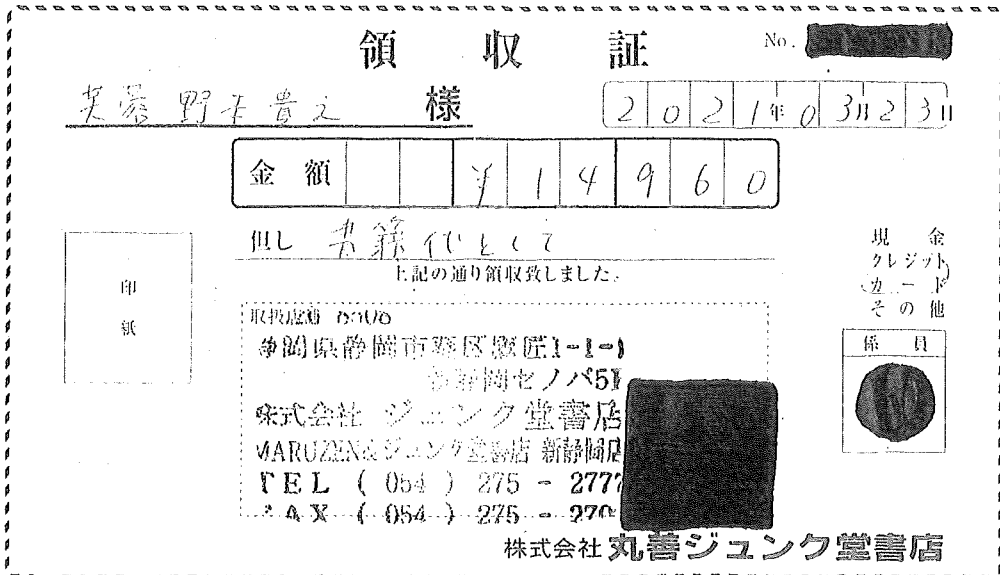 領収証
No.
芙蓉 野末貴之 様
2021年03月23日
金額 ¥14960
但し 書籍代として
上記の通り領収致しました。
現金
クレジット
カード
その他
印紙
係員
取扱店番
静岡県静岡市葵区鷹匠1-1-1
新静岡セノバ5F
株式会社 ジュンク堂書店
MARUZEN&ジュンク堂書店 新静岡店
TEL ( 054 ) 275 - 2777
FAX ( 054 ) 275 - 270
株式会社 丸善ジュンク堂書店